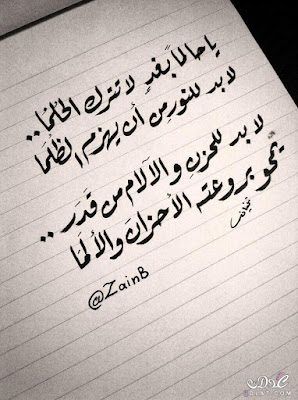 يا حالمًا بغدٍ لا تترك الحلما..
لابد للنور من أن يهزم الظلما
لابد للحزن والآلام من قدر..
يمحو بروعته الأحزان والألما
@ZainB